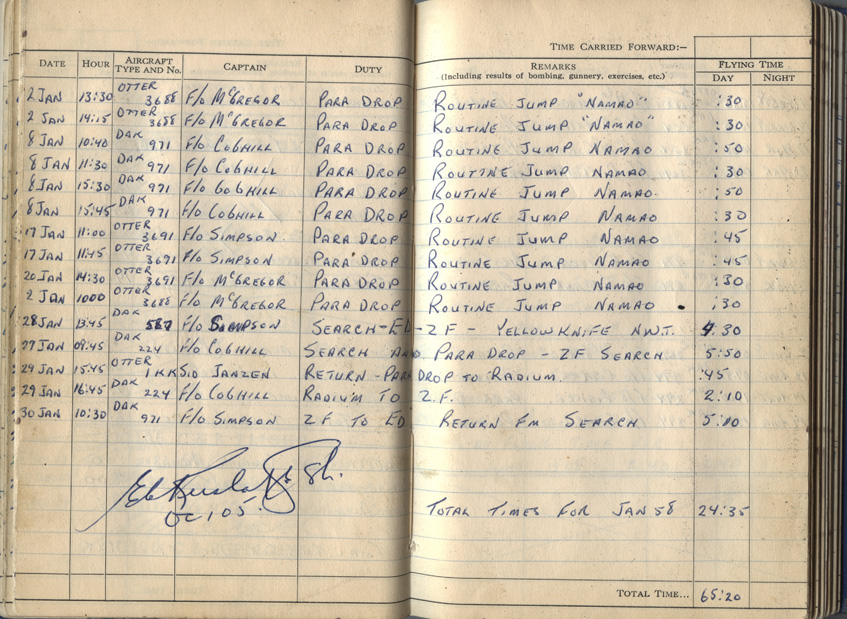 TIME CARRIED FORWARD:—
DATE HOUR AIRCRAFT TYPE AND No. CAPTAIN DUTY REMARKS (Including results of bombing, gunnery, exercises, etc.) FLYING TIME DAY NIGHT
2 JAN 13:30 OTTER 3688 F/O McGREGOR PARA DROP ROUTINE JUMP "NAMAO" :30
2 JAN 14:15 OTTER 3688 F/O McGREGOR PARA DROP ROUTINE JUMP "NAMAO" :30
8 JAN 10:40 DAK 971 F/O COGHILL PARA DROP ROUTINE JUMP NAMAO :50
8 JAN 11:30 DAK 971 F/O COGHILL PARA DROP ROUTINE JUMP NAMAO :30
8 JAN 15:30 DAK 971 F/O GOGHILL PARA DROP ROUTINE JUMP NAMAO :50
8 JAN 15:45 DAK 971 F/O COGHILL PARA DROP ROUTINE JUMP NAMAO :30
17 JAN 11:00 OTTER 3691 F/O SIMPSON PARA DROP ROUTINE JUMP NAMAO :45
17 JAN 11:45 OTTER 3691 F/O SIMPSON PARA DROP ROUTINE JUMP NAMAO :45
20 JAN 14:30 OTTER 3691 F/O McGREGOR PARA DROP ROUTINE JUMP NAMAO :30
2 JAN 1000 OTTER 3688 F/O McGREGOR PARA DROP ROUTINE JUMP NAMAO :30
28 JAN 13:45 DAK F/O SIMPSON SEARCH-ED-ZF - YELLOWKNIFE N.W.T. :30
27 JAN 09:45 DAK 224 F/O COGHILL SEARCH AND PARA DROP - ZF SEARCH 5:50
29 JAN 15:45 OTTER JANZEN RETURN - PARA DROP TO RADIUM. :45
29 JAN 16:45 DAK 224 F/O COGHILL RADIUM TO Z.F. 2:10
30 JAN 10:30 DAK 971 F/O SIMPSON ZF TO ED RETURN FM SEARCH
OC 105.
TOTAL TIMES FOR JAN 58 24:35
TOTAL TIME... 65:20